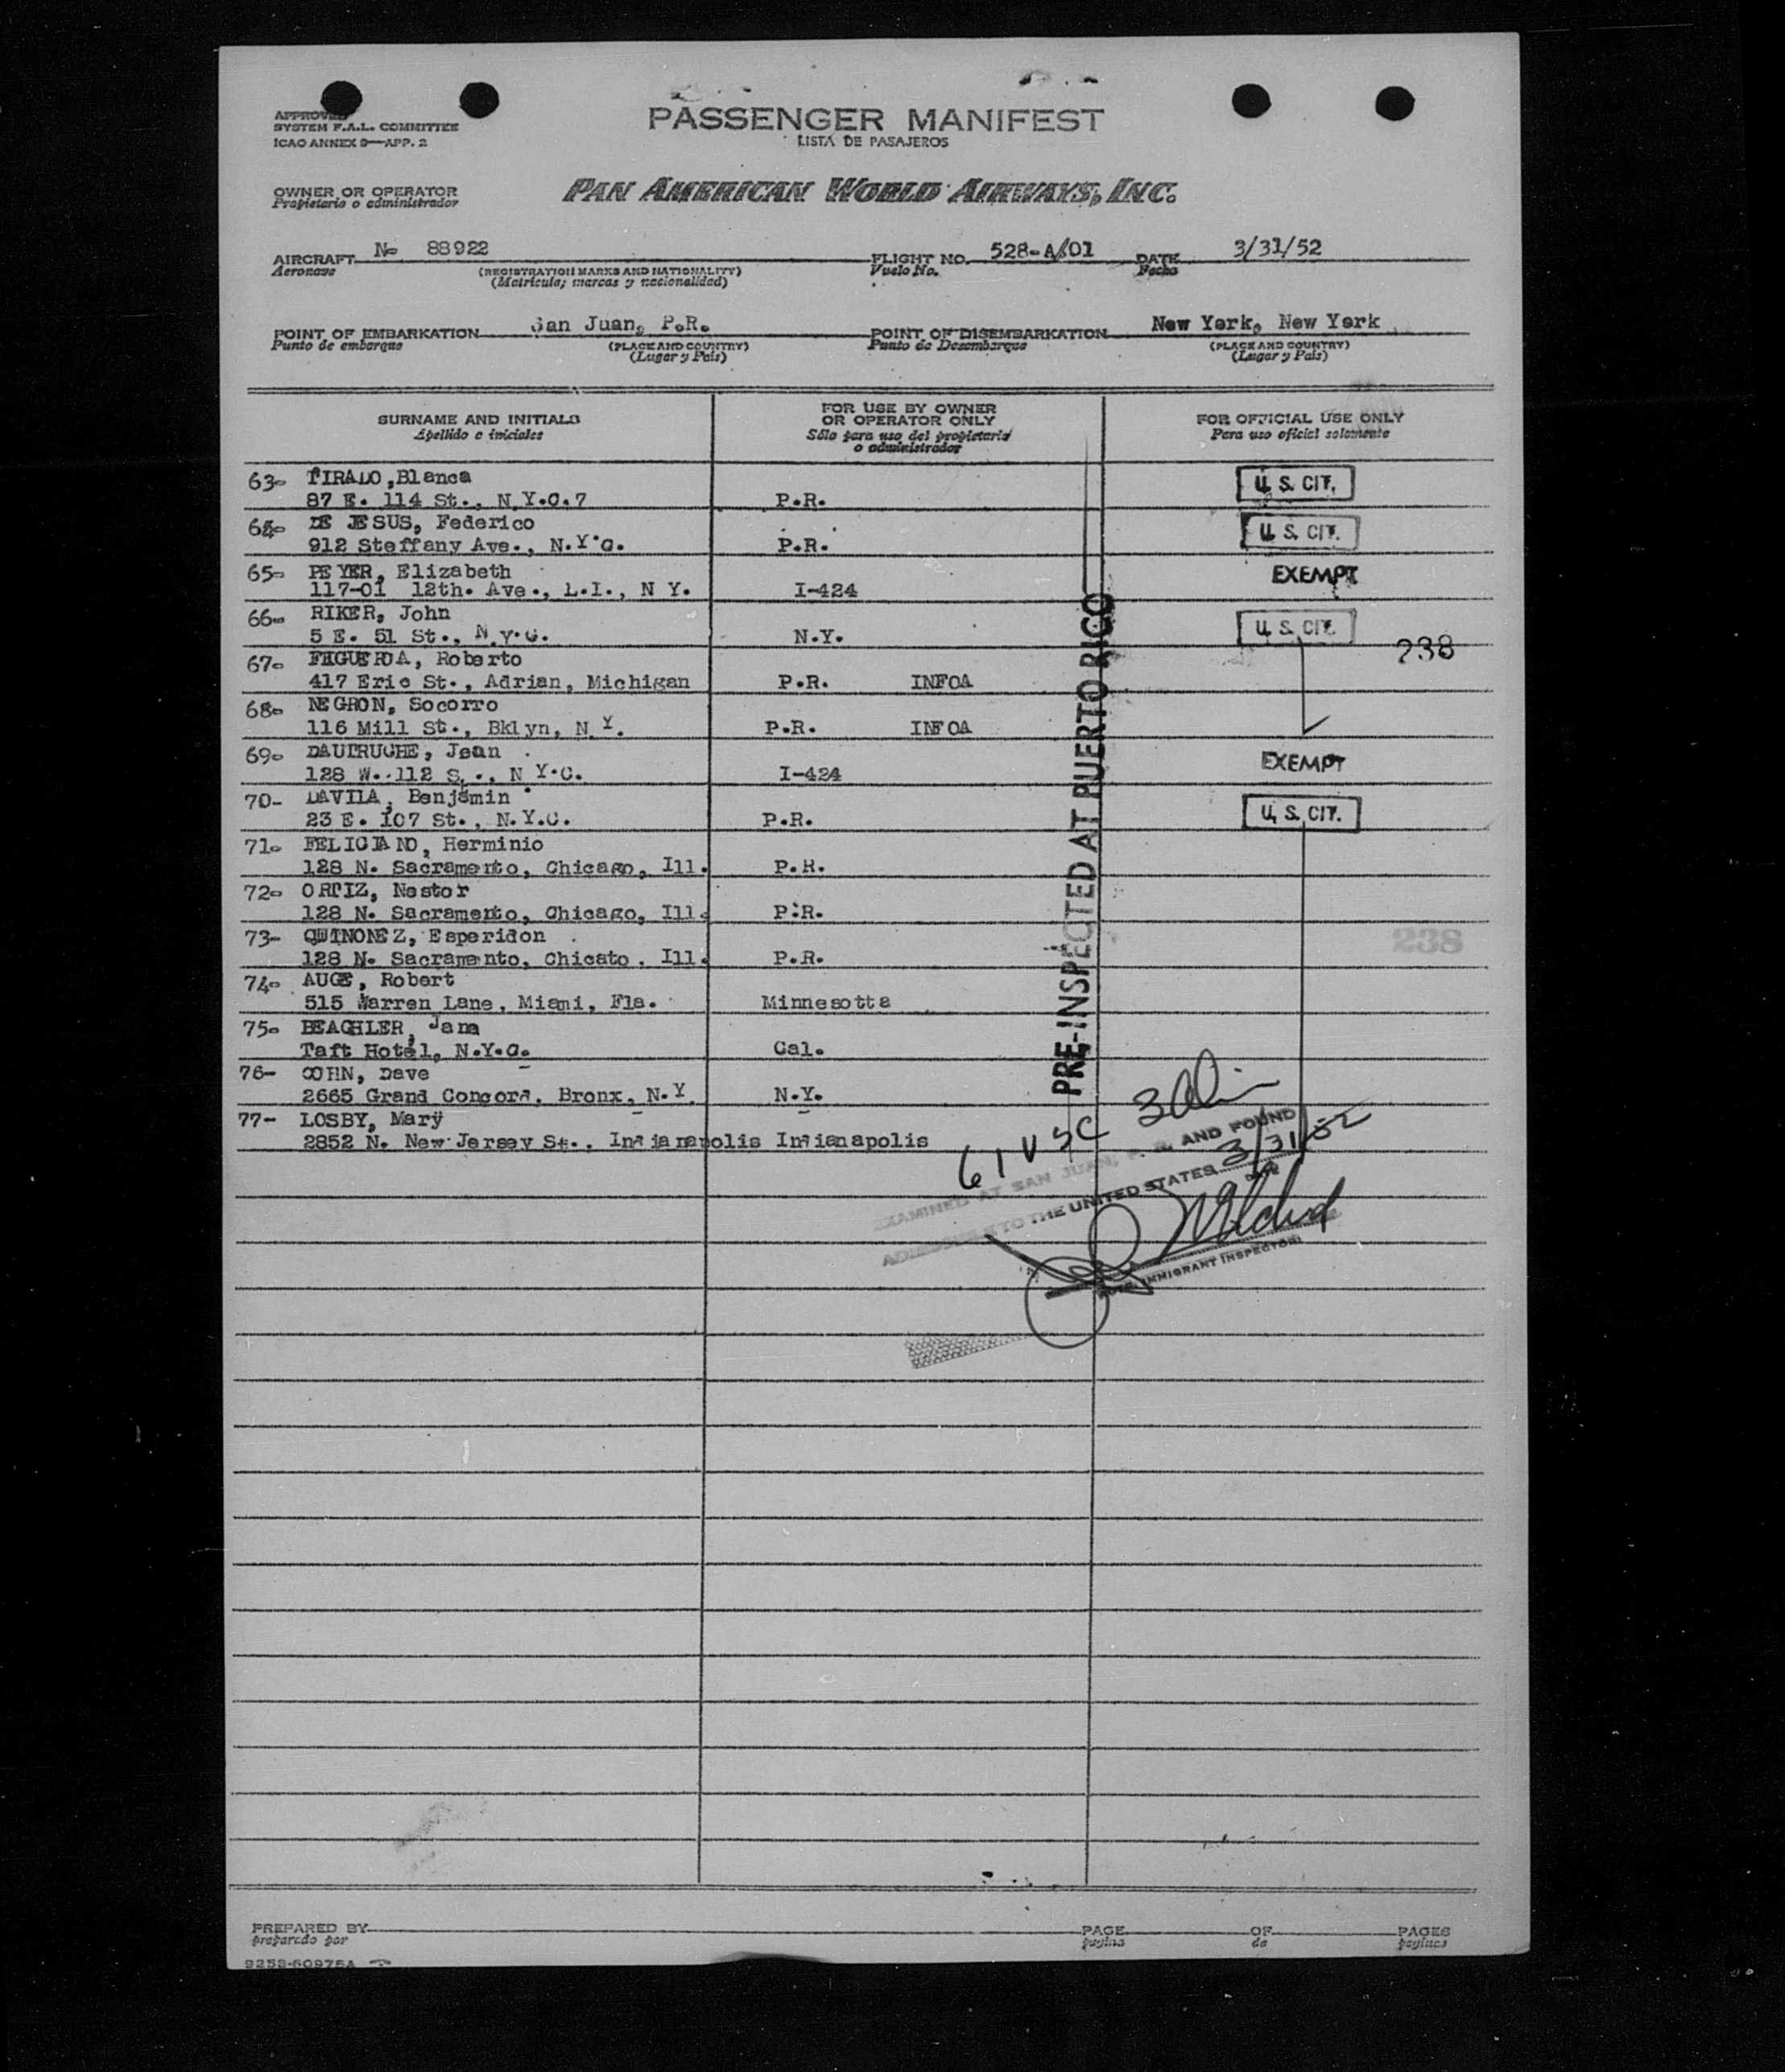 APPROVED
SYSTEM F.A.L. COMMITTEE
ICAO ANNEX 9—APP. 2
PASSENGER MANIFEST
LISTA DE PASAJEROS
OWNER OR OPERATOR
Propietario o administrador
PAN AMERICAN WORLD AIRWAYS, INC.
AIRCRAFT No 88922 FLIGHT NO. 528-A/01 DATE 3/31/52
Aeronave (REGISTRATION MARKS AND NATIONALITY) Vuelo No. Fecha
(Matricula; marcas y nacionalidad)
POINT OF EMBARKATION San Juan, P.R. POINT OF DISEMBARKATION New York, New York
Punto de embarque (PLACE AND COUNTRY) Punto de Desembarque (PLACE AND COUNTRY)
(Lugar y Pais) (Lugar y Pais)
SURNAME AND INITIALS
Apellido e iniciales
FOR USE BY OWNER
OR OPERATOR ONLY
Sólo para uso del propietario
o administrador
FOR OFFICIAL USE ONLY
Para uso oficial solamente
63- TIRADO,Blanca U. S. CIT.
87 E. 114 St., N Y.C.7 P.R.
64- DE JESUS, Federico U. S. CIT.
912 Steffany Ave., N.Y.C. P.R.
65- PEYER, Elizabeth EXEMPT
117-01 12th. Ave., L.I., N Y. I-424
66- RIKER, John U. S. CIT.
5 E. 51 St., N Y.C. N.Y. 238
67- FIGUEROA, Roberto
417 Eric St., Adrian, Michigan P.R. INFOA
68- NEGRON, Socorro
116 Mill St., Bklyn, N.Y. P.R. INFOA
69- DAUTRUCHE, Jean EXEMPT
128 W. 112 S.., N Y.C. I-424
70- DAVILA, Benjamin U. S. CIT.
23 E. 107 St., N.Y.C. P.R.
71- FELICIANO, Herminio
128 N. Sacramento, Chicago, Ill. P.R.
72- ORTIZ, Nestor
128 N. Sacramento, Chicago, Ill. P.R.
73- QUINONEZ, Esperidon 238
128 N. Sacramento, Chicato, Ill. P.R.
74- AUGE, Robert
515 Warren Lane, Miami, Fla. Minnesotta
75- BEACHLER, Jana
Taft Hotel, N.Y.C. Cal.
76- COHN, Dave
2665 Grand Concord, Bronx, N.Y. N.Y.
77- LOSBY, Mary
2852 N. New Jersey St., Indianapolis Indianapolis
PRE-INSPECTED AT PUERTO RICO
61 USC
EXAMINED AT SAN JUAN, P. R. AND FOUND
ADMISSIBLE TO THE UNITED STATES 3/31/52
DATE
IMMIGRANT INSPECTOR
PREPARED BY PAGE OF PAGES
preparado por pagina de paginas
9253-60975A